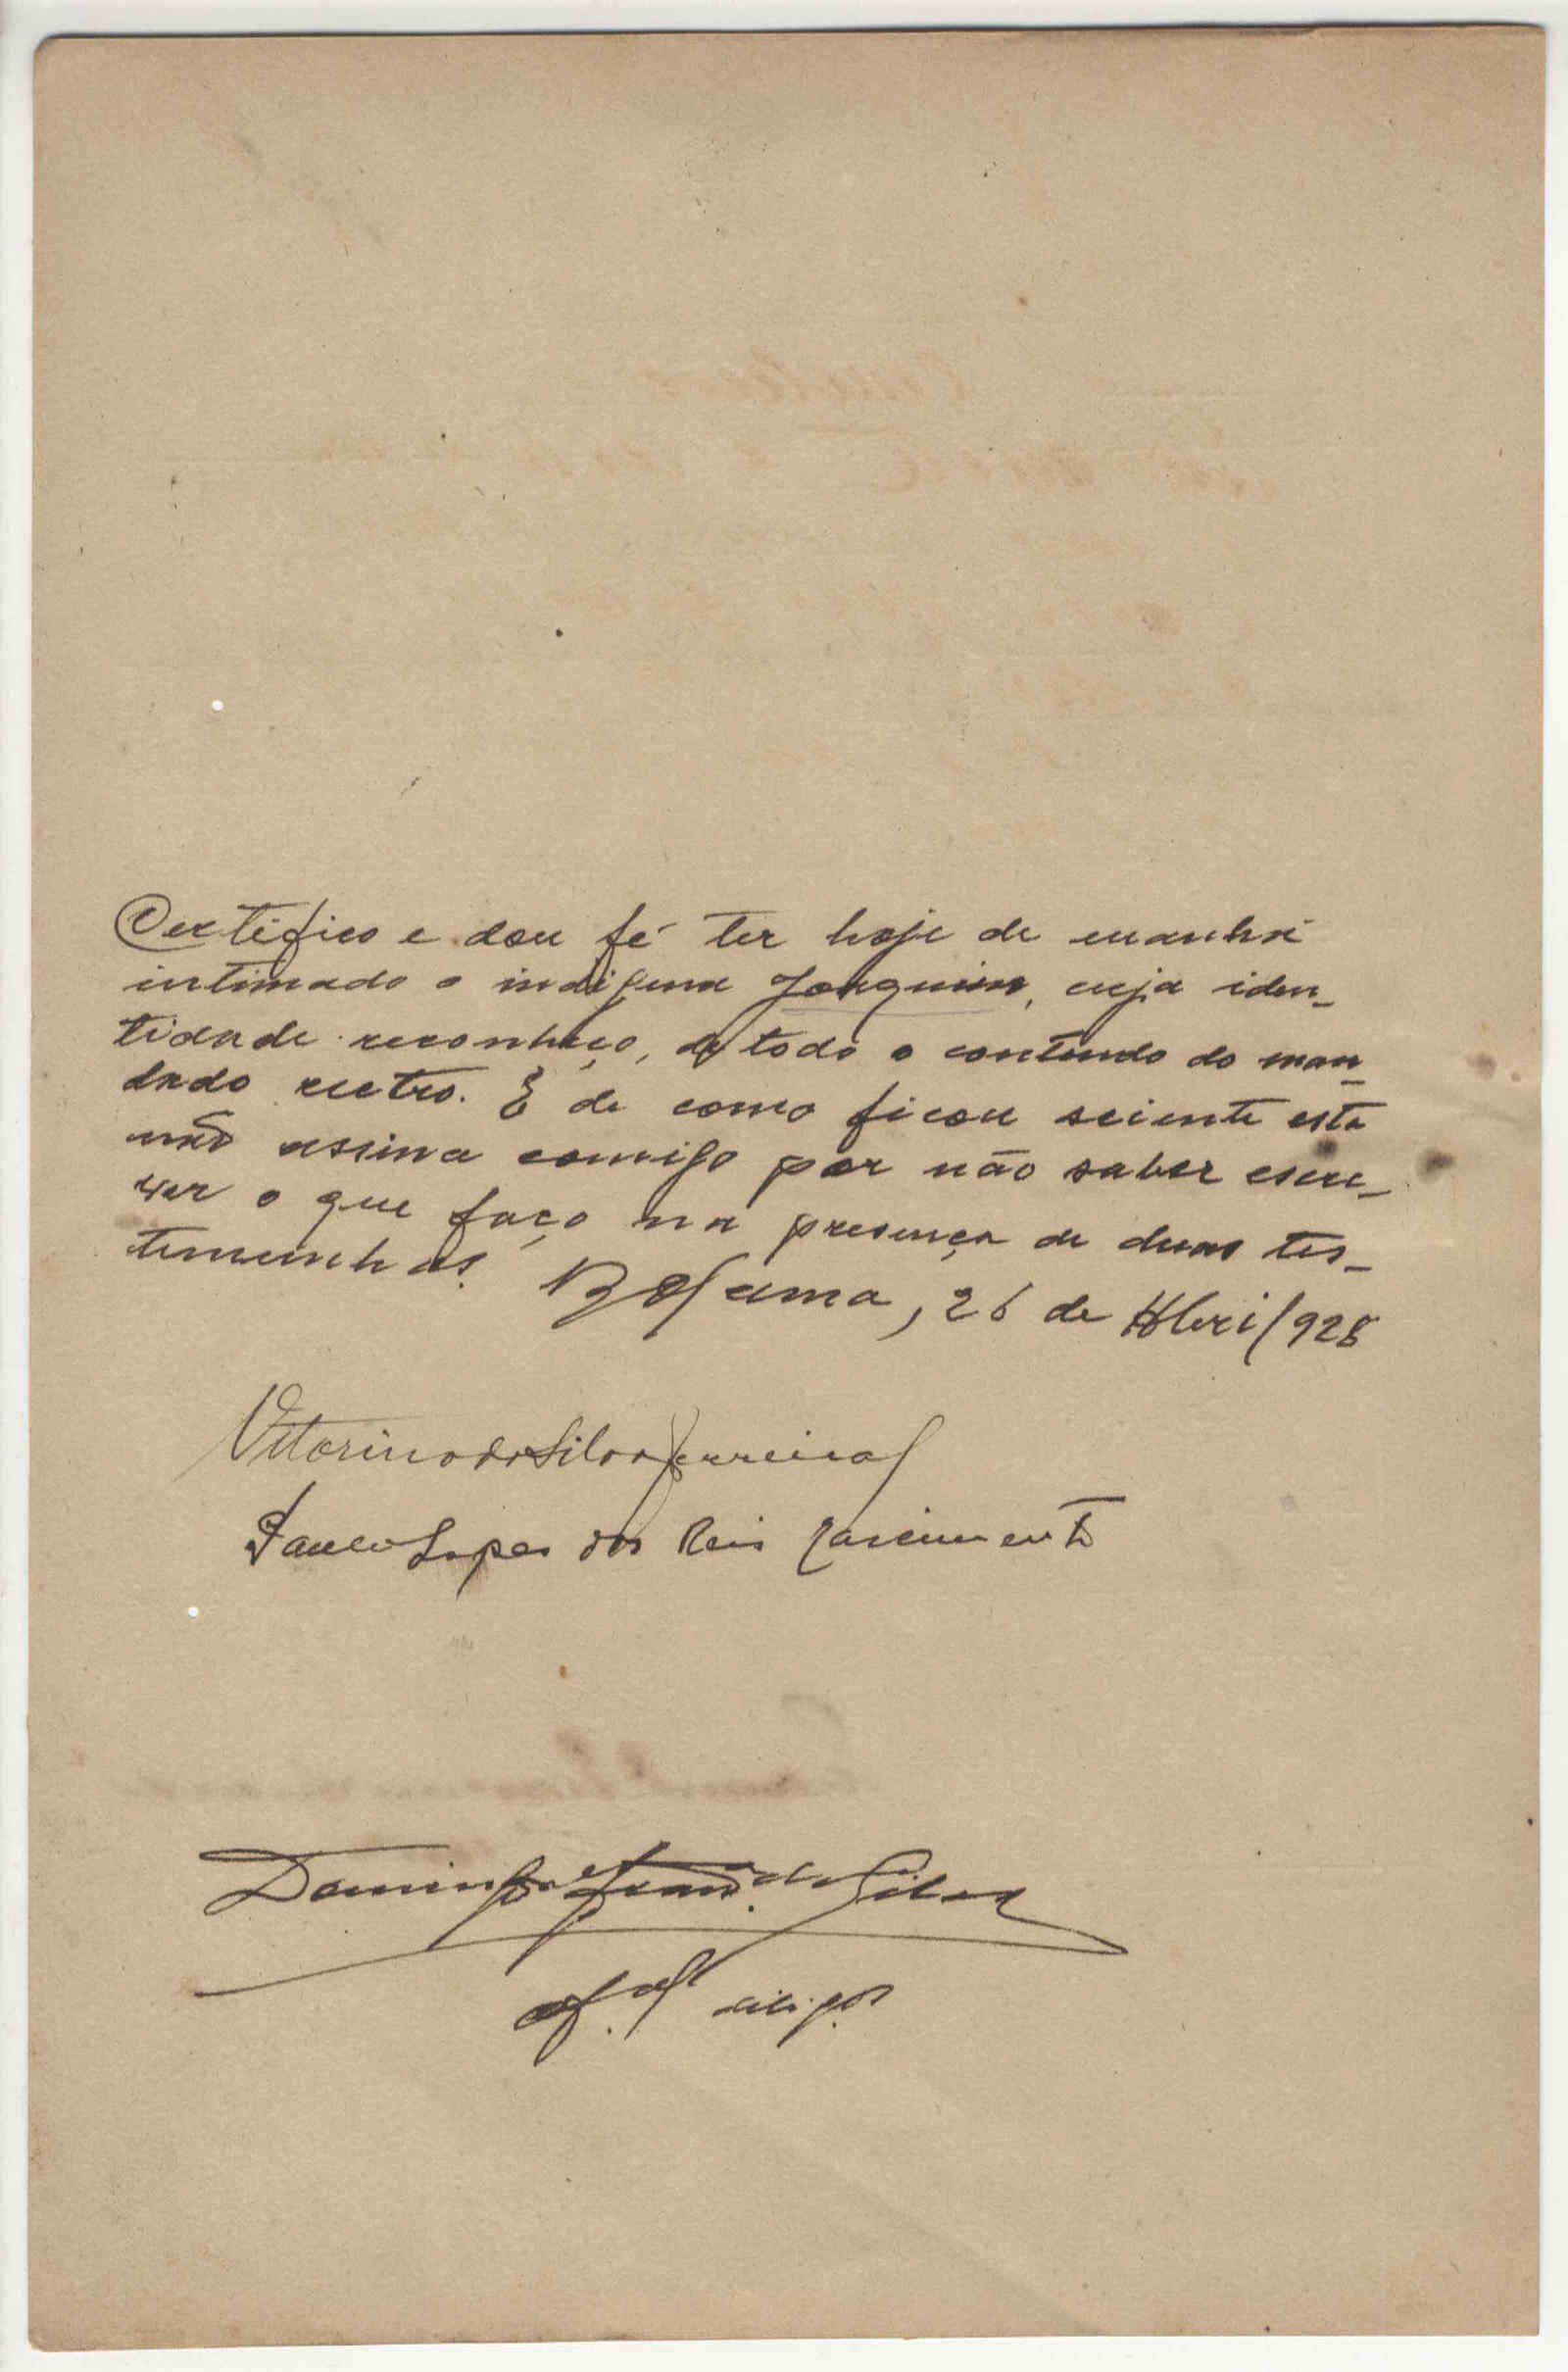 Certifico e dou fé ter hoje de manhã
intimado o indigena Joaquim, cuja iden-
tidade reconheço, de todo o conteudo do man-
dado rectro. E de como ficou sciente esta
não assina comigo por não saber escre-
ver o que faço na presença de duas tes-
temunhas. Bolama, 26 de Abril 928
Vitorino da Silva Ferreira
Paulo Lopes dos Reis Nascimento
Domingos da Silva
of. al diligos